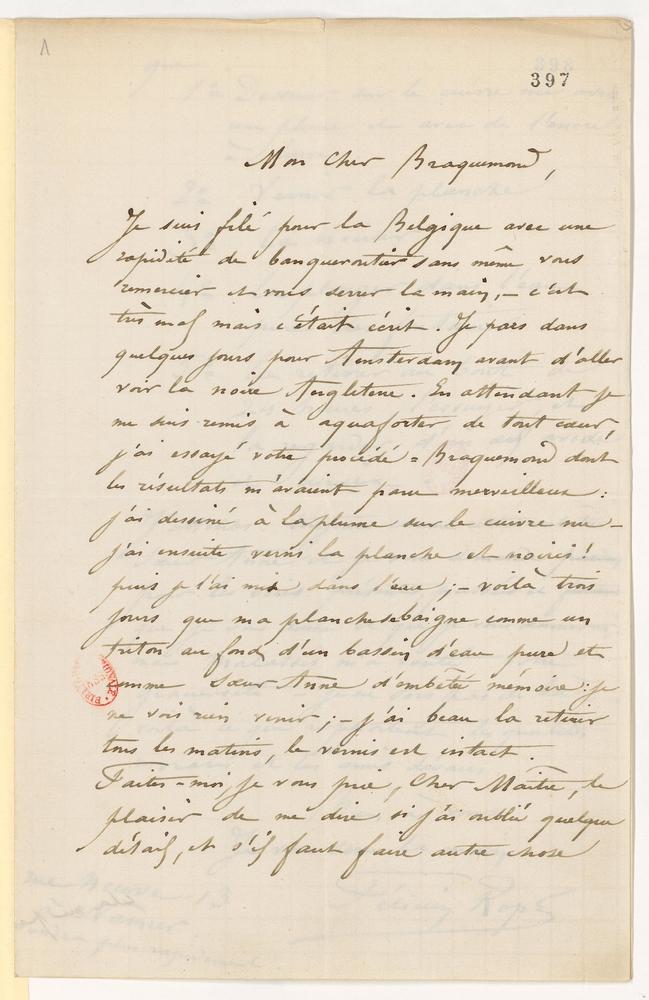 397
Mon Cher Braquemond,
Je suis filé pour la Belgique avec une
rapidité de banqueroutier sans même vous
remercier et vous serrer la main, – c'est
très mal mais c'était écrit. Je pars dans
quelques jours pour Amsterdam avant d'aller
voir la noire Angleterre. En attendant je
me suis remis à aquaforter, de tout cœur,
j'ai essayé votre procédé = Braquemond dont
les résultats m'avaient paru merveilleux :
j'ai dessiné à la plume sur le cuivre nu –
j'ai ensuite verni la planche et noirci !
puis je l'ai mis dans l'eau ; – voilà trois
jours que ma planche se baigne comme un
triton au fond d'un bassin d'eau pure et
comme Sœur Anne d'embêtée mémoire : je
ne vois rien venir ; – j'ai beau la retirer
tous les matins, le vernis est intact.
Faites-moi, je vous prie, Cher Maître, le
plaisir de me dire si j'ai oublié quelque
détail, et s'il faut faire autre chose